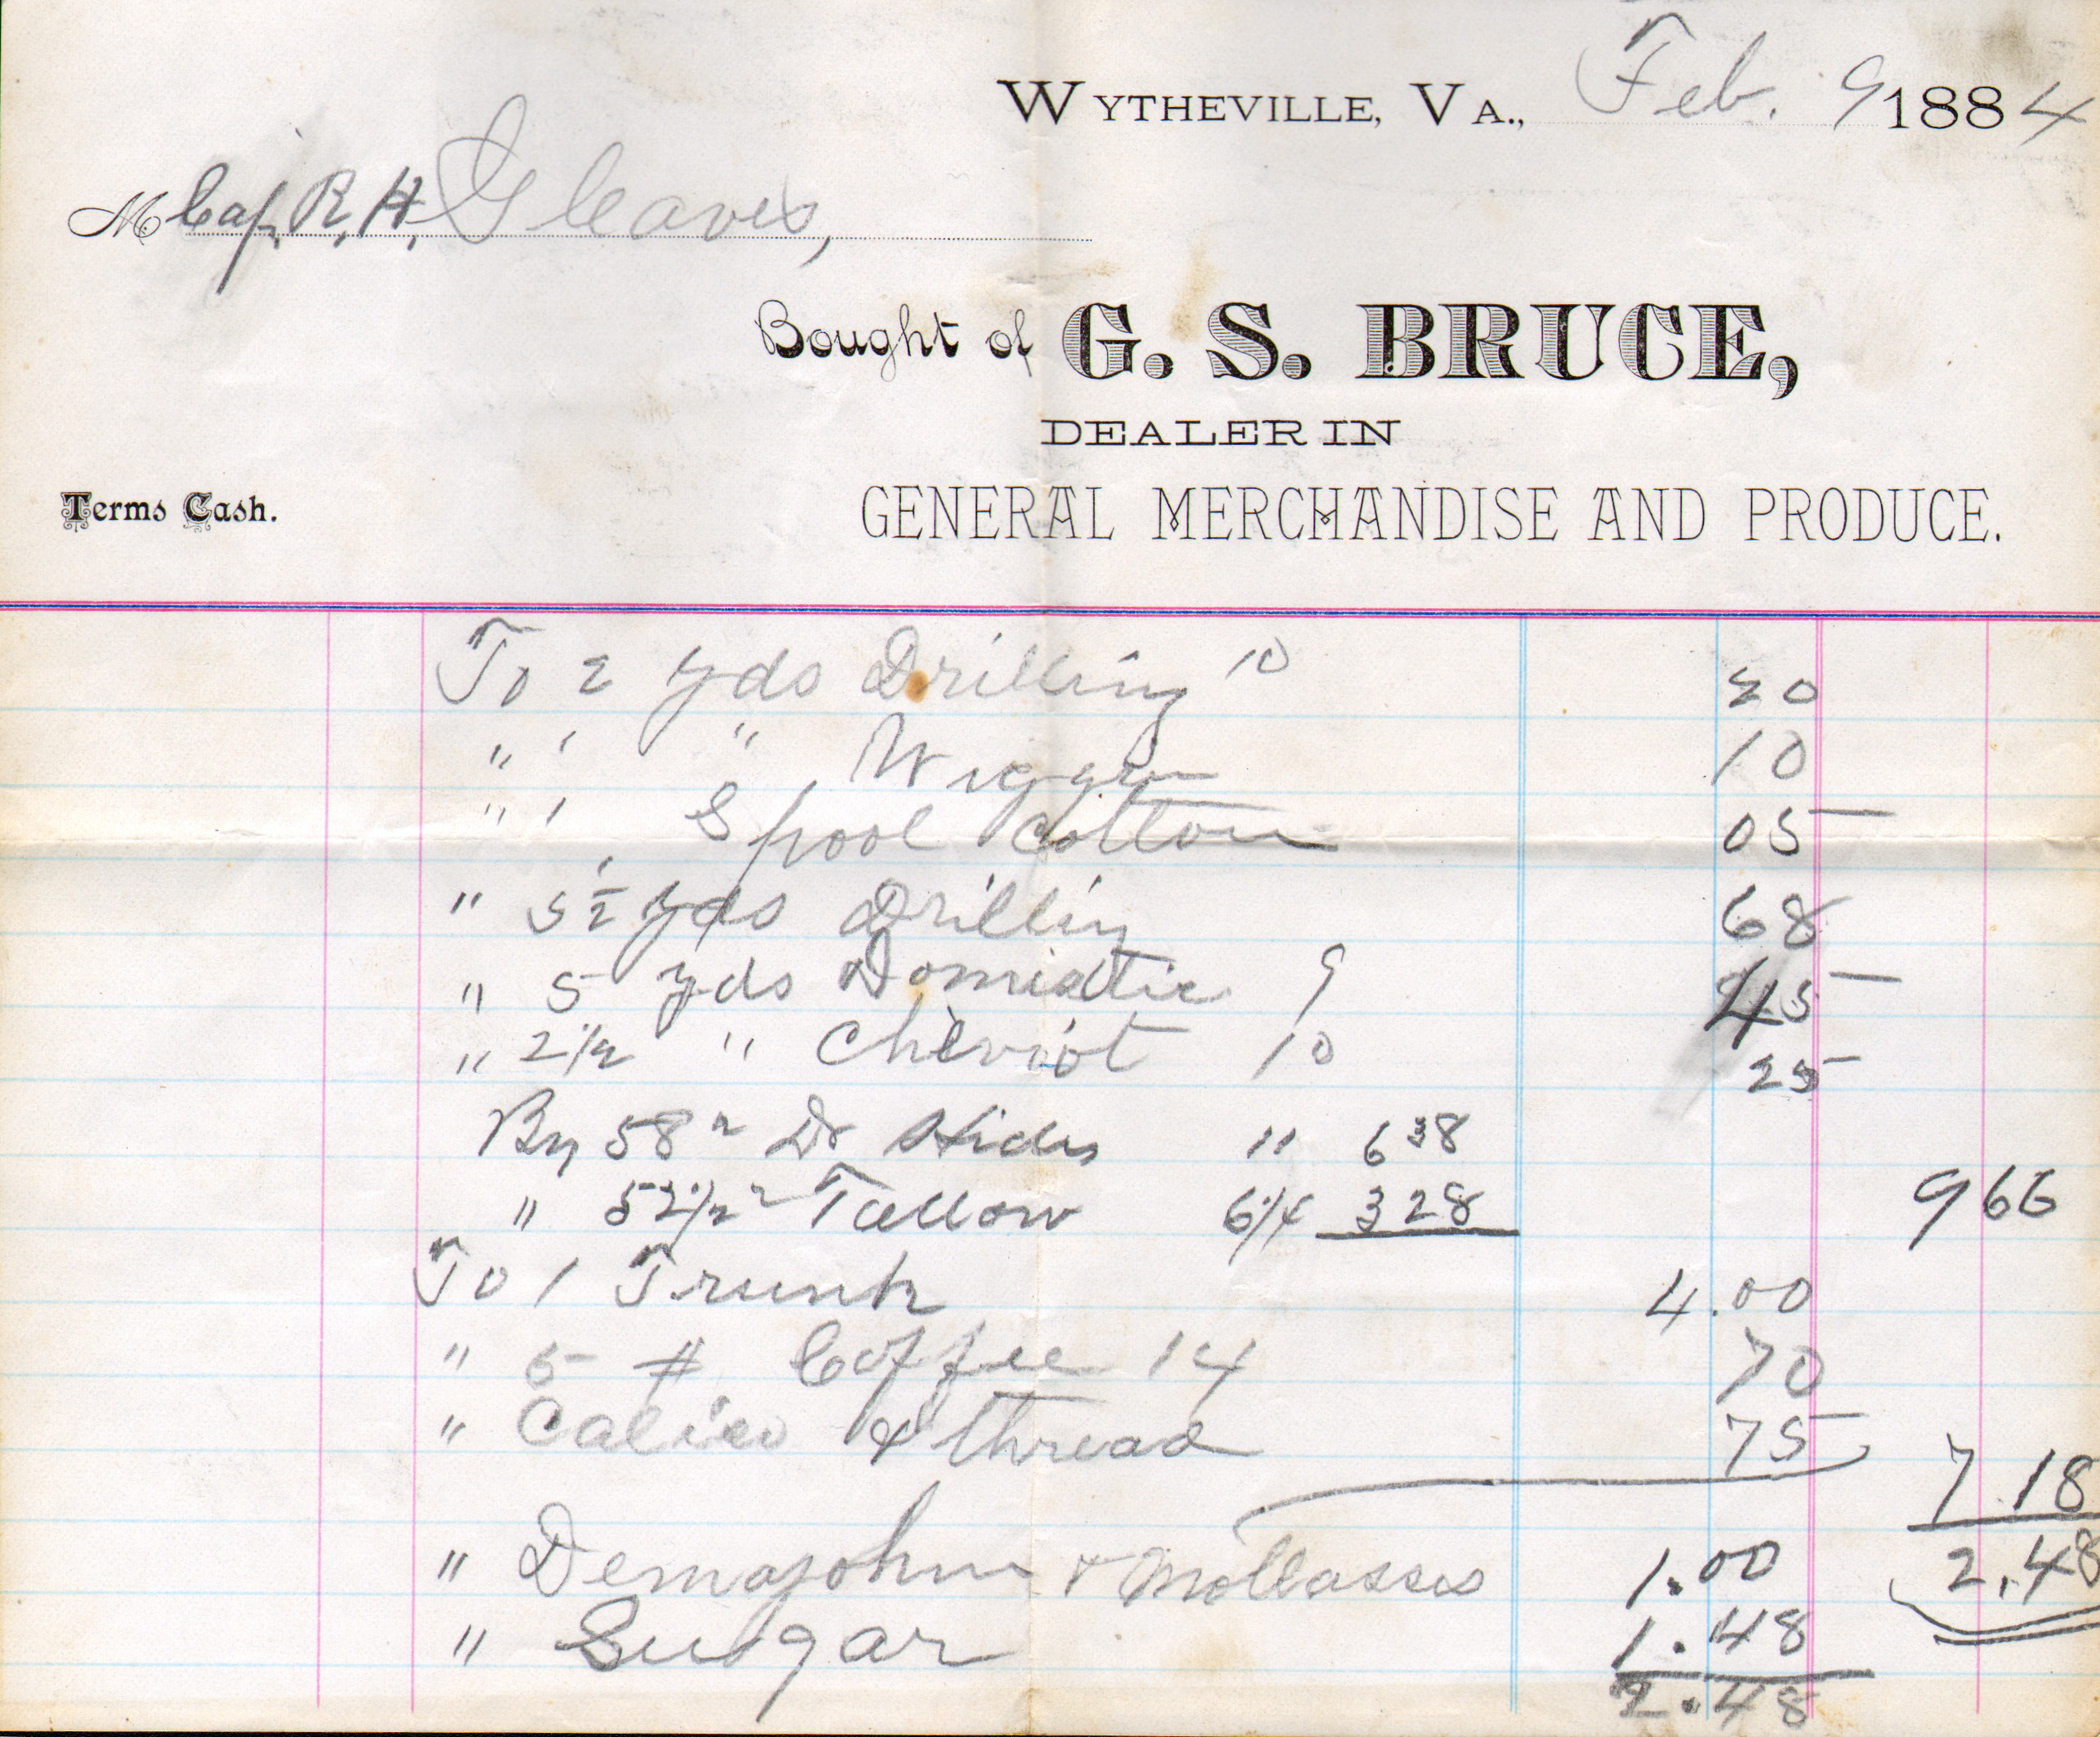 WYTHEVILLE, VA., Feb. 9 1884
M Cap, R, H, Gleaves,
Bought of G. S. BRUCE,
DEALER IN
Terms Cash. GENERAL MERCHANDISE AND PRODUCE.
To 2 yds Drilling 10 20
" 1 " Wiggin 10
" 1 Spool Cotton 05
" 5 1/2 yds Drillin 68
" 5 yds Domestic 9 45
" 2 1/2 " Cheviot 10 25
By 58 Hides 11 638
" 52 1/2 Tallow 6 1/4 328 966
To 1 Trunk 4.00
" 5 # Coffee 14 70
" Calico & thread 75
7 18
" Demajohn & Mollasses 1.00 2.48
" Sugar 1.48
2.48